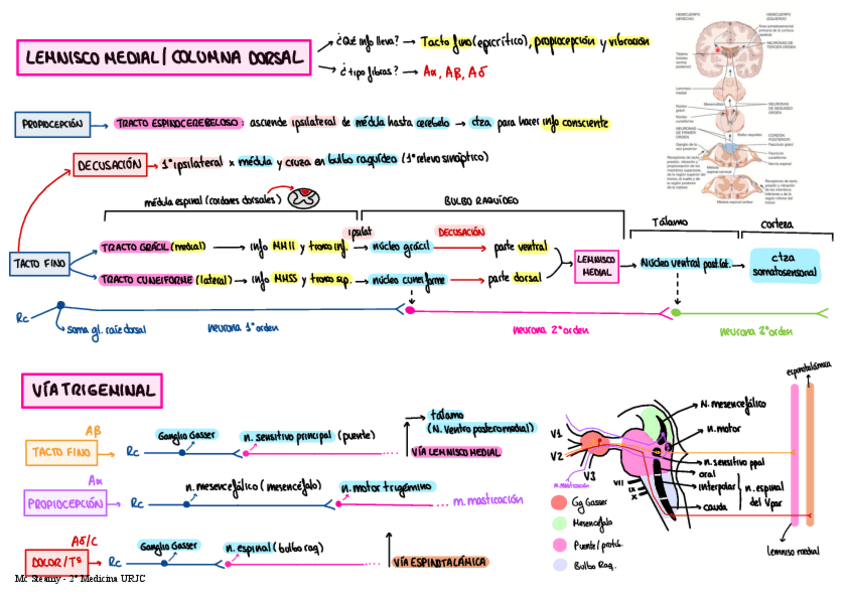 LEMNISCO MEDIAL / COLUMNA DORSAL
¿Qué info lleva? → Tacto fino (epicrítico), propiocepción y vibración
¿tipo fibras? → Aα, AB, Aδ
PROPIOCEPCIÓN → TRACTO ESPINOCEREBELOSO: asciende ipsilateral de médula hasta cerebelo → ctza para hacer info consciente
DECUSACIÓN → 1º ipsilateral x médula y cruza en bulbo raquídeo (1º relevo sináptico)
médula espinal (cordones dorsales)
BULBO RAQUÍDEO
Tálamo
corteza
ipsilat
DECUSACIÓN
TACTO FINO
TRACTO GRÁCIL (medial) → info MMII y tronco inf. → núcleo grácil → parte ventral
TRACTO CUNEIFORME (lateral) → info MMSS y tronco sup. → núcleo cuneiforme → parte dorsal
LEMNISCO MEDIAL → Núcleo ventral post. lat. → ctza somatosensorial
Rc
soma gl. raíz dorsal
neurona 1º orden
neurona 2º orden
neurona 2º orden
HEMICUERPO DERECHO
HEMICUERPO IZQUIERDO
NEURONAS DE TERCER ORDEN
Lemnisco medial
NEURONAS DE SEGUNDO ORDEN
NEURONAS DE PRIMER ORDEN
Médula espinal cervical
Médula espinal lumbar
VÍA TRIGEMINAL
AB
TACTO FINO → Rc
Ganglio Gasser
n. sensitivo principal (puente)
tálamo
(N. Ventro posteromedial)
VÍA LEMNISCO MEDIAL
Aα
PROPIOCEPCIÓN → Rc
n. mesencefálico (mesencéfalo)
n. motor trigémino
m. masticación
Aδ/C
DOLOR/Tº → Rc
Ganglio Gasser
n. espinal (bulbo raq)
VÍA ESPINOTALÁMICA
espinotalámica
N. mesencefálico
n. motor
n. sensitivo ppal
oral
interpolar
cauda
n. espinal del Vpar
V1
V2
V3
m. masticación
VII
IX
X
Gg Gasser
Mesencéfalo
Puente/protub.
Bulbo Raq.
lemnisco medial
Mc Steamy - 2º Medicina URJC